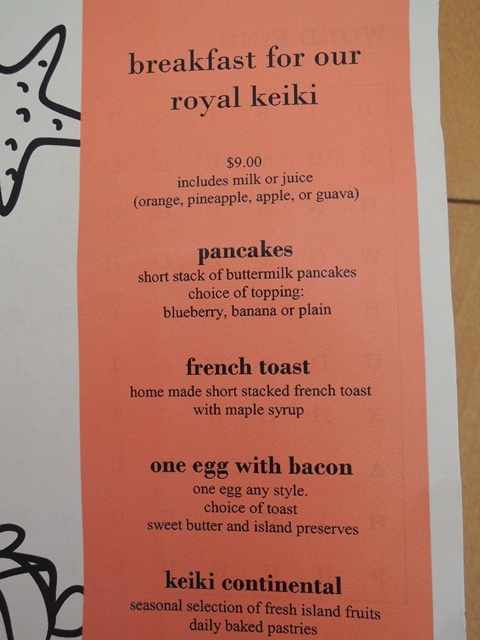 breakfast for our
royal keiki
$9.00
includes milk or juice
(orange, pineapple, apple, or guava)
pancakes
short stack of buttermilk pancakes
choice of topping:
blueberry, banana or plain
french toast
home made short stacked french toast
with maple syrup
one egg with bacon
one egg any style.
choice of toast
sweet butter and island preserves
keiki continental
seasonal selection of fresh island fruits
daily baked pastries